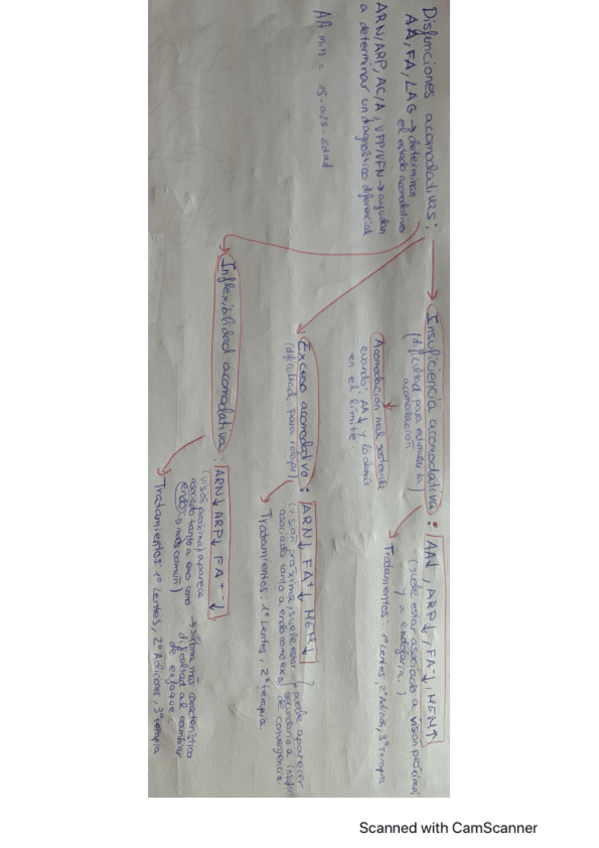 Disfunciones acomodativas:
AA, FA, LAG → determinan
el estado acomodativo
ARN/ARP, AC/A, VFP/VFN → ayudan
a determinar un diagnóstico diferencial
AA min = 15-0,25·edad
Insuficiencia acomodativa:
(dificultad para estimular la
acomodación)
AA↓, ARP↓, FA-↓, MEM↑
(suele estar asociado a visión próxima
y a endoforia.)
Tratamientos: 1º Lentes, 2º Adición, 3º terapia
Acomodación mal sostenida
cuando: AA↓ y lo demás
en el límite.
Exceso acomodativo:
(dificultad para relajar)
ARN↓, FA+↓, MEM↓
(visión próxima, suele estar
asociado tanto a endo como exo)
puede aparecer
secundario a insufi
de convergencia.
Tratamientos: 1º Lentes, 2º terapia.
Inflexibilidad acomodativa:
ARN↓ ARP↓ FA+-↓
(visión próxima) aparece
asociado tanto a exo como
endo → más común)
→ síntoma más característico
dificultad al cambiar
de enfoque.
Tratamientos: 1º Lentes, 2º Adiciones, 3º terapia
Scanned with CamScanner